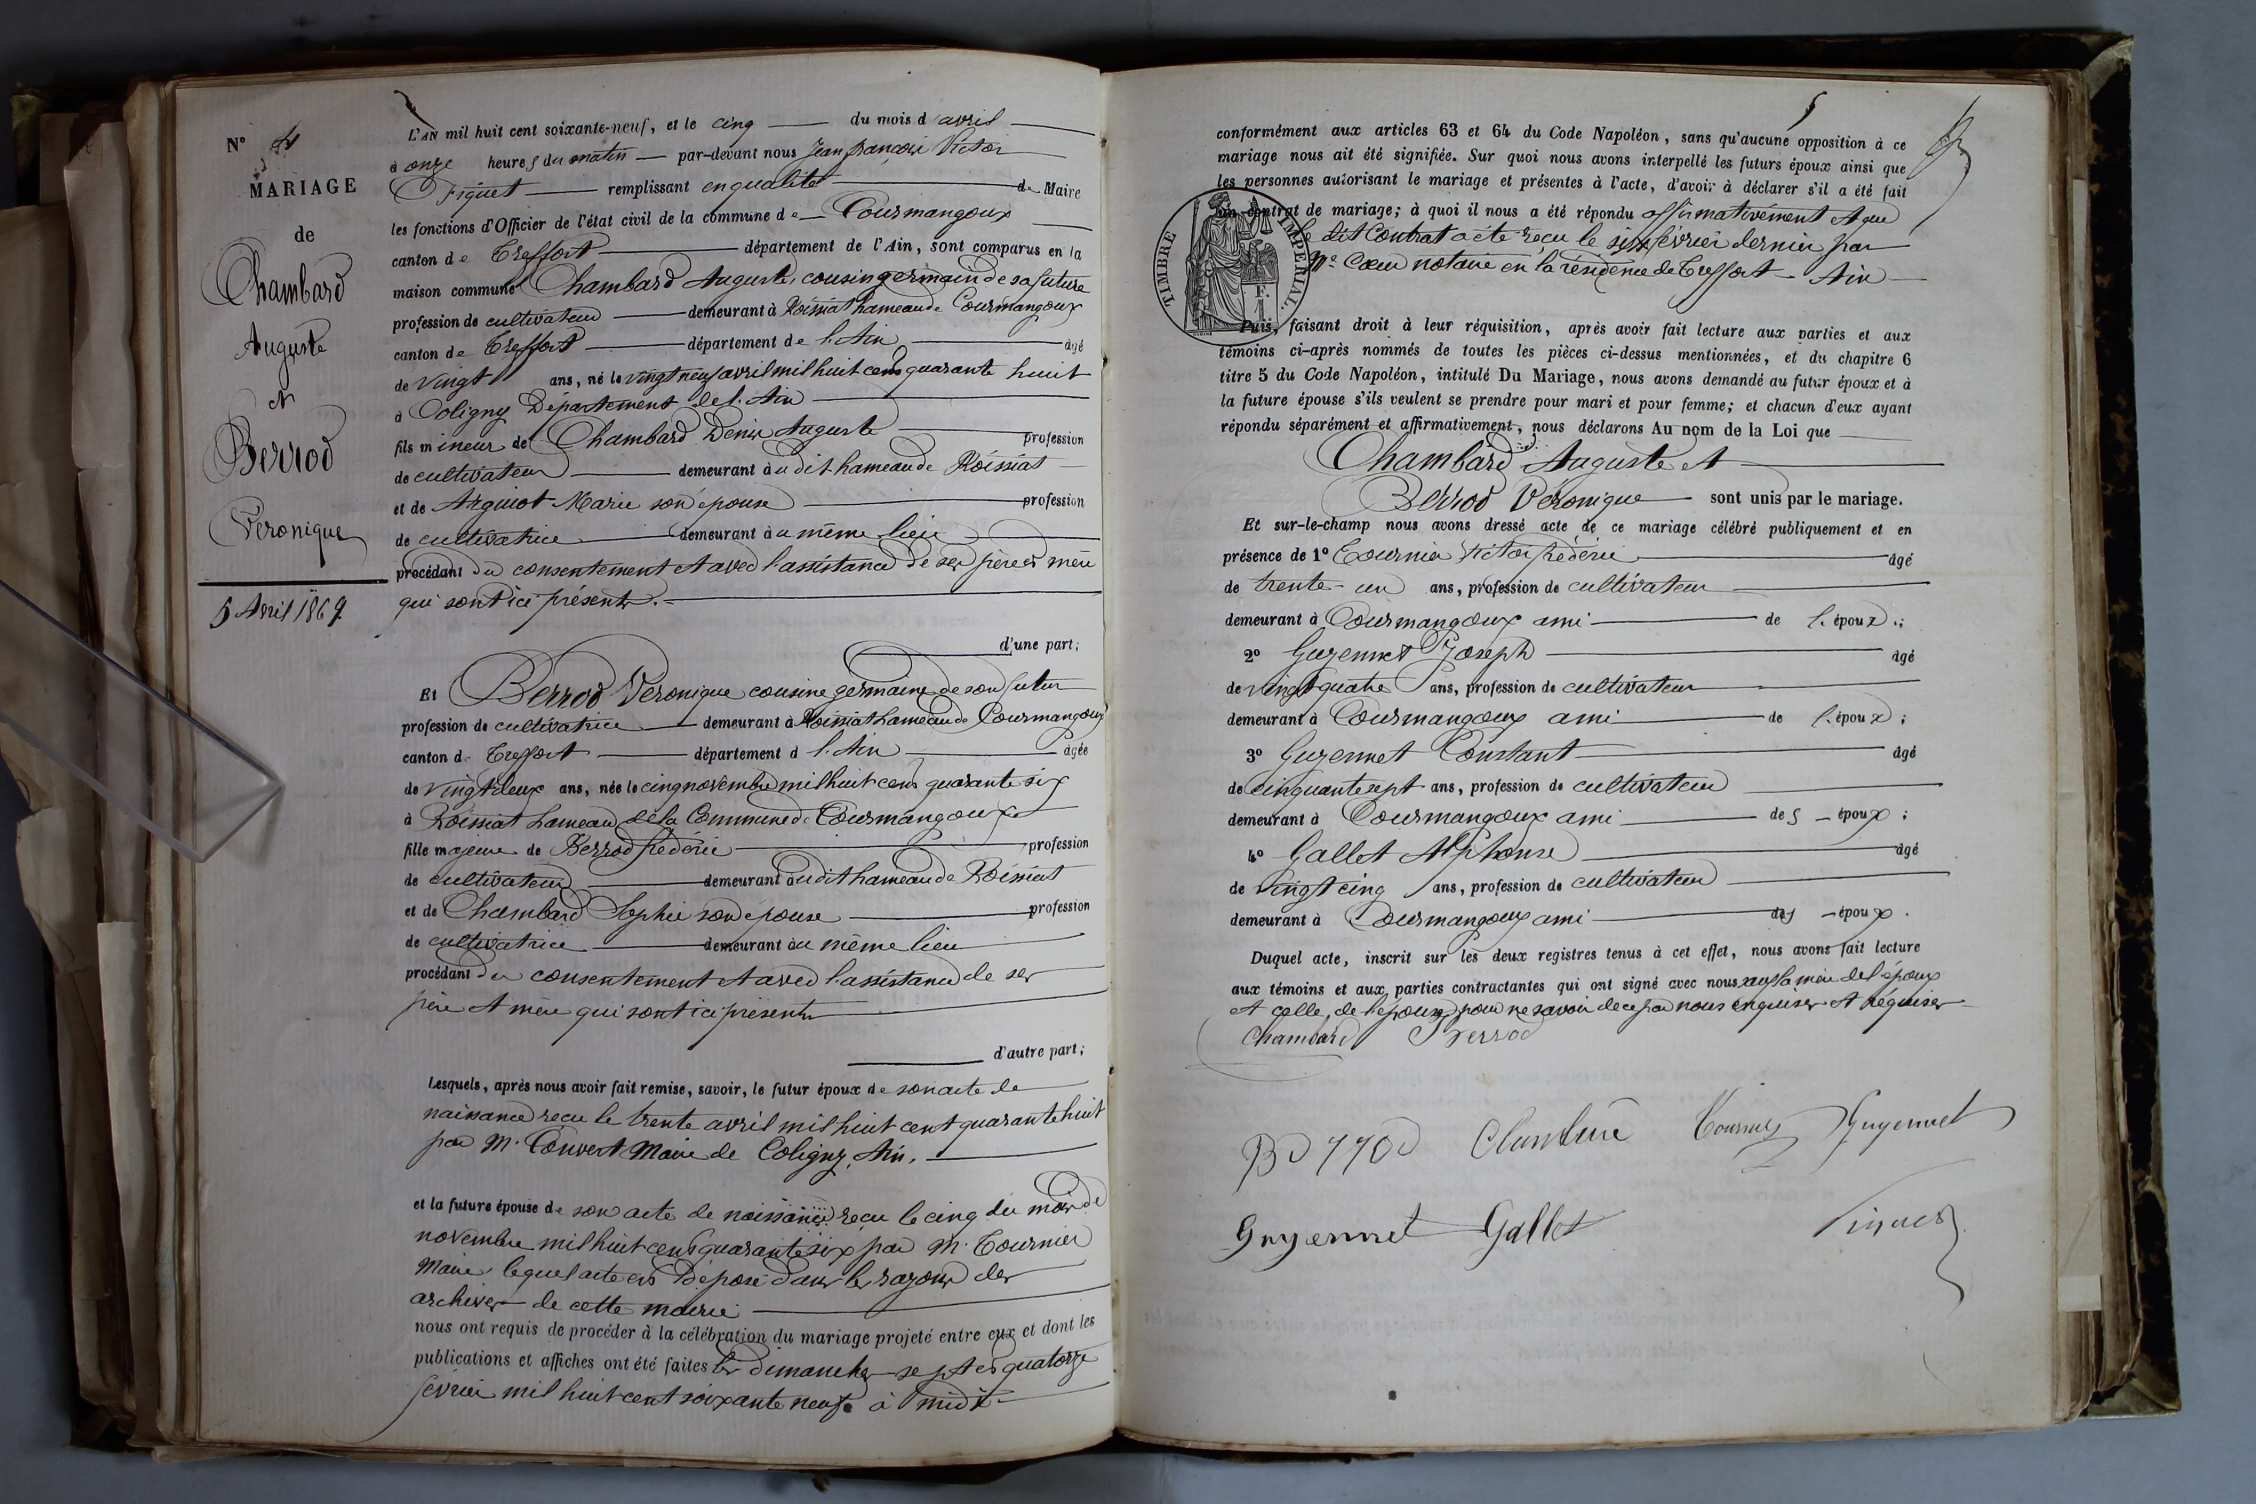 N° 4
MARIAGE
de
Chambard
Auguste
et
Berrod
Veronique
5 Avril 1869
L'AN mil huit cent soixante-neuf, et le cinq du mois d'avril
à onze heures du matin par-devant nous Jean françois Victor
Piguet remplissant en qualité de Maire
les fonctions d'Officier de l'état civil de la commune de Courmangoux
canton de Treffort département de l'Ain, sont comparus en la
maison commune Chambard Auguste, cousin germain de sa future
profession de cultivateur demeurant à Roissiat hameau de Courmangoux
canton de Treffort département de l'Ain âgé
de vingt ans, né le vingt neuf avril mil huit cent quarante huit
à Coligny Département de l'Ain
fils mineur de Chambard Denis Auguste profession
de cultivateur demeurant au dit hameau de Roissiat
et de Marie son épouse profession
de cultivatrice demeurant au même lieu
procédant du consentement et avec l'assistance de ses père et mère
qui sont ici présents.
d'une part;
Et Berrod Veronique cousine germaine de son futur
profession de cultivatrice demeurant à Roissiat hameau de Courmangoux
canton de Treffort département d l'Ain âgée
de vingt deux ans, née le cinq novembre mil huit cent quarante six
à Roissiat hameau de la Commune de Courmangoux
fille majeure de Berrod frédéric profession
de cultivateur demeurant au dit hameau de Roissiat
et de Chambard Sophie son épouse profession
de cultivatrice demeurant au même lieu
procédant du consentement et avec l'assistance de ses
père et mère qui sont ici présents
d'autre part;
Lesquels, après nous avoir fait remise, savoir, le futur époux de son acte de
naissance reçu le trente avril mil huit cent quarante huit
par M. Convert Maire de Coligny, Ain.
et la future épouse de son acte de naissance reçu le cinq du mois de
novembre mil huit cent quarante six par M. Tournier
Maire lequel acte est déposé dans les rayons des
archives de cette mairie
nous ont requis de procéder à la célébration du mariage projeté entre eux et dont les
publications et affiches ont été faites les dimanches sept et quatorze
février mil huit cent soixante neuf à midi
5
conformément aux articles 63 et 64 du Code Napoléon, sans qu'aucune opposition à ce
mariage nous ait été signifiée. Sur quoi nous avons interpellé les futurs époux ainsi que
les personnes autorisant le mariage et présentes à l'acte, d'avoir à déclarer s'il a été fait
un contrat de mariage; à quoi il nous a été répondu affirmativement et que
le dit Contrat a été reçu le six février dernier par
Me Cœur notaire en la résidence de Treffort - Ain
TIMBRE IMPÉRIAL.
1 F.
Puis, faisant droit à leur réquisition, après avoir fait lecture aux parties et aux
témoins ci-après nommés de toutes les pièces ci-dessus mentionnées, et du chapitre 6
titre 5 du Code Napoléon, intitulé Du Mariage, nous avons demandé au futur époux et à
la future épouse s'ils veulent se prendre pour mari et pour femme; et chacun d'eux ayant
répondu séparément et affirmativement, nous déclarons Au nom de la Loi que
Chambard Auguste et
Berrod Véronique sont unis par le mariage.
Et sur-le-champ nous avons dressé acte de ce mariage célébré publiquement et en
présence de 1° Tournier Victor frédéric âgé
de trente-un ans, profession de cultivateur
demeurant à Courmangoux ami de l'époux;
2° Guyennet Joseph âgé
de vingt quatre ans, profession de cultivateur
demeurant à Courmangoux ami de l'époux;
3° Guyennet Constant âgé
de cinquante sept ans, profession de cultivateur
demeurant à Courmangoux ami des époux;
4° Gallet Alphonse âgé
de vingt cinq ans, profession de cultivateur
demeurant à Courmangoux ami des époux.
Duquel acte, inscrit sur les deux registres tenus à cet effet, nous avons fait lecture
aux témoins et aux parties contractantes qui ont signé avec nous sauf la mère de l'époux
et celle de l'épouse pour ne savoir de ce par nous enquises et réquises
Chambard Berrod
Berrod Chambard Tournier Guyennet
Guyennet Gallet Piguet